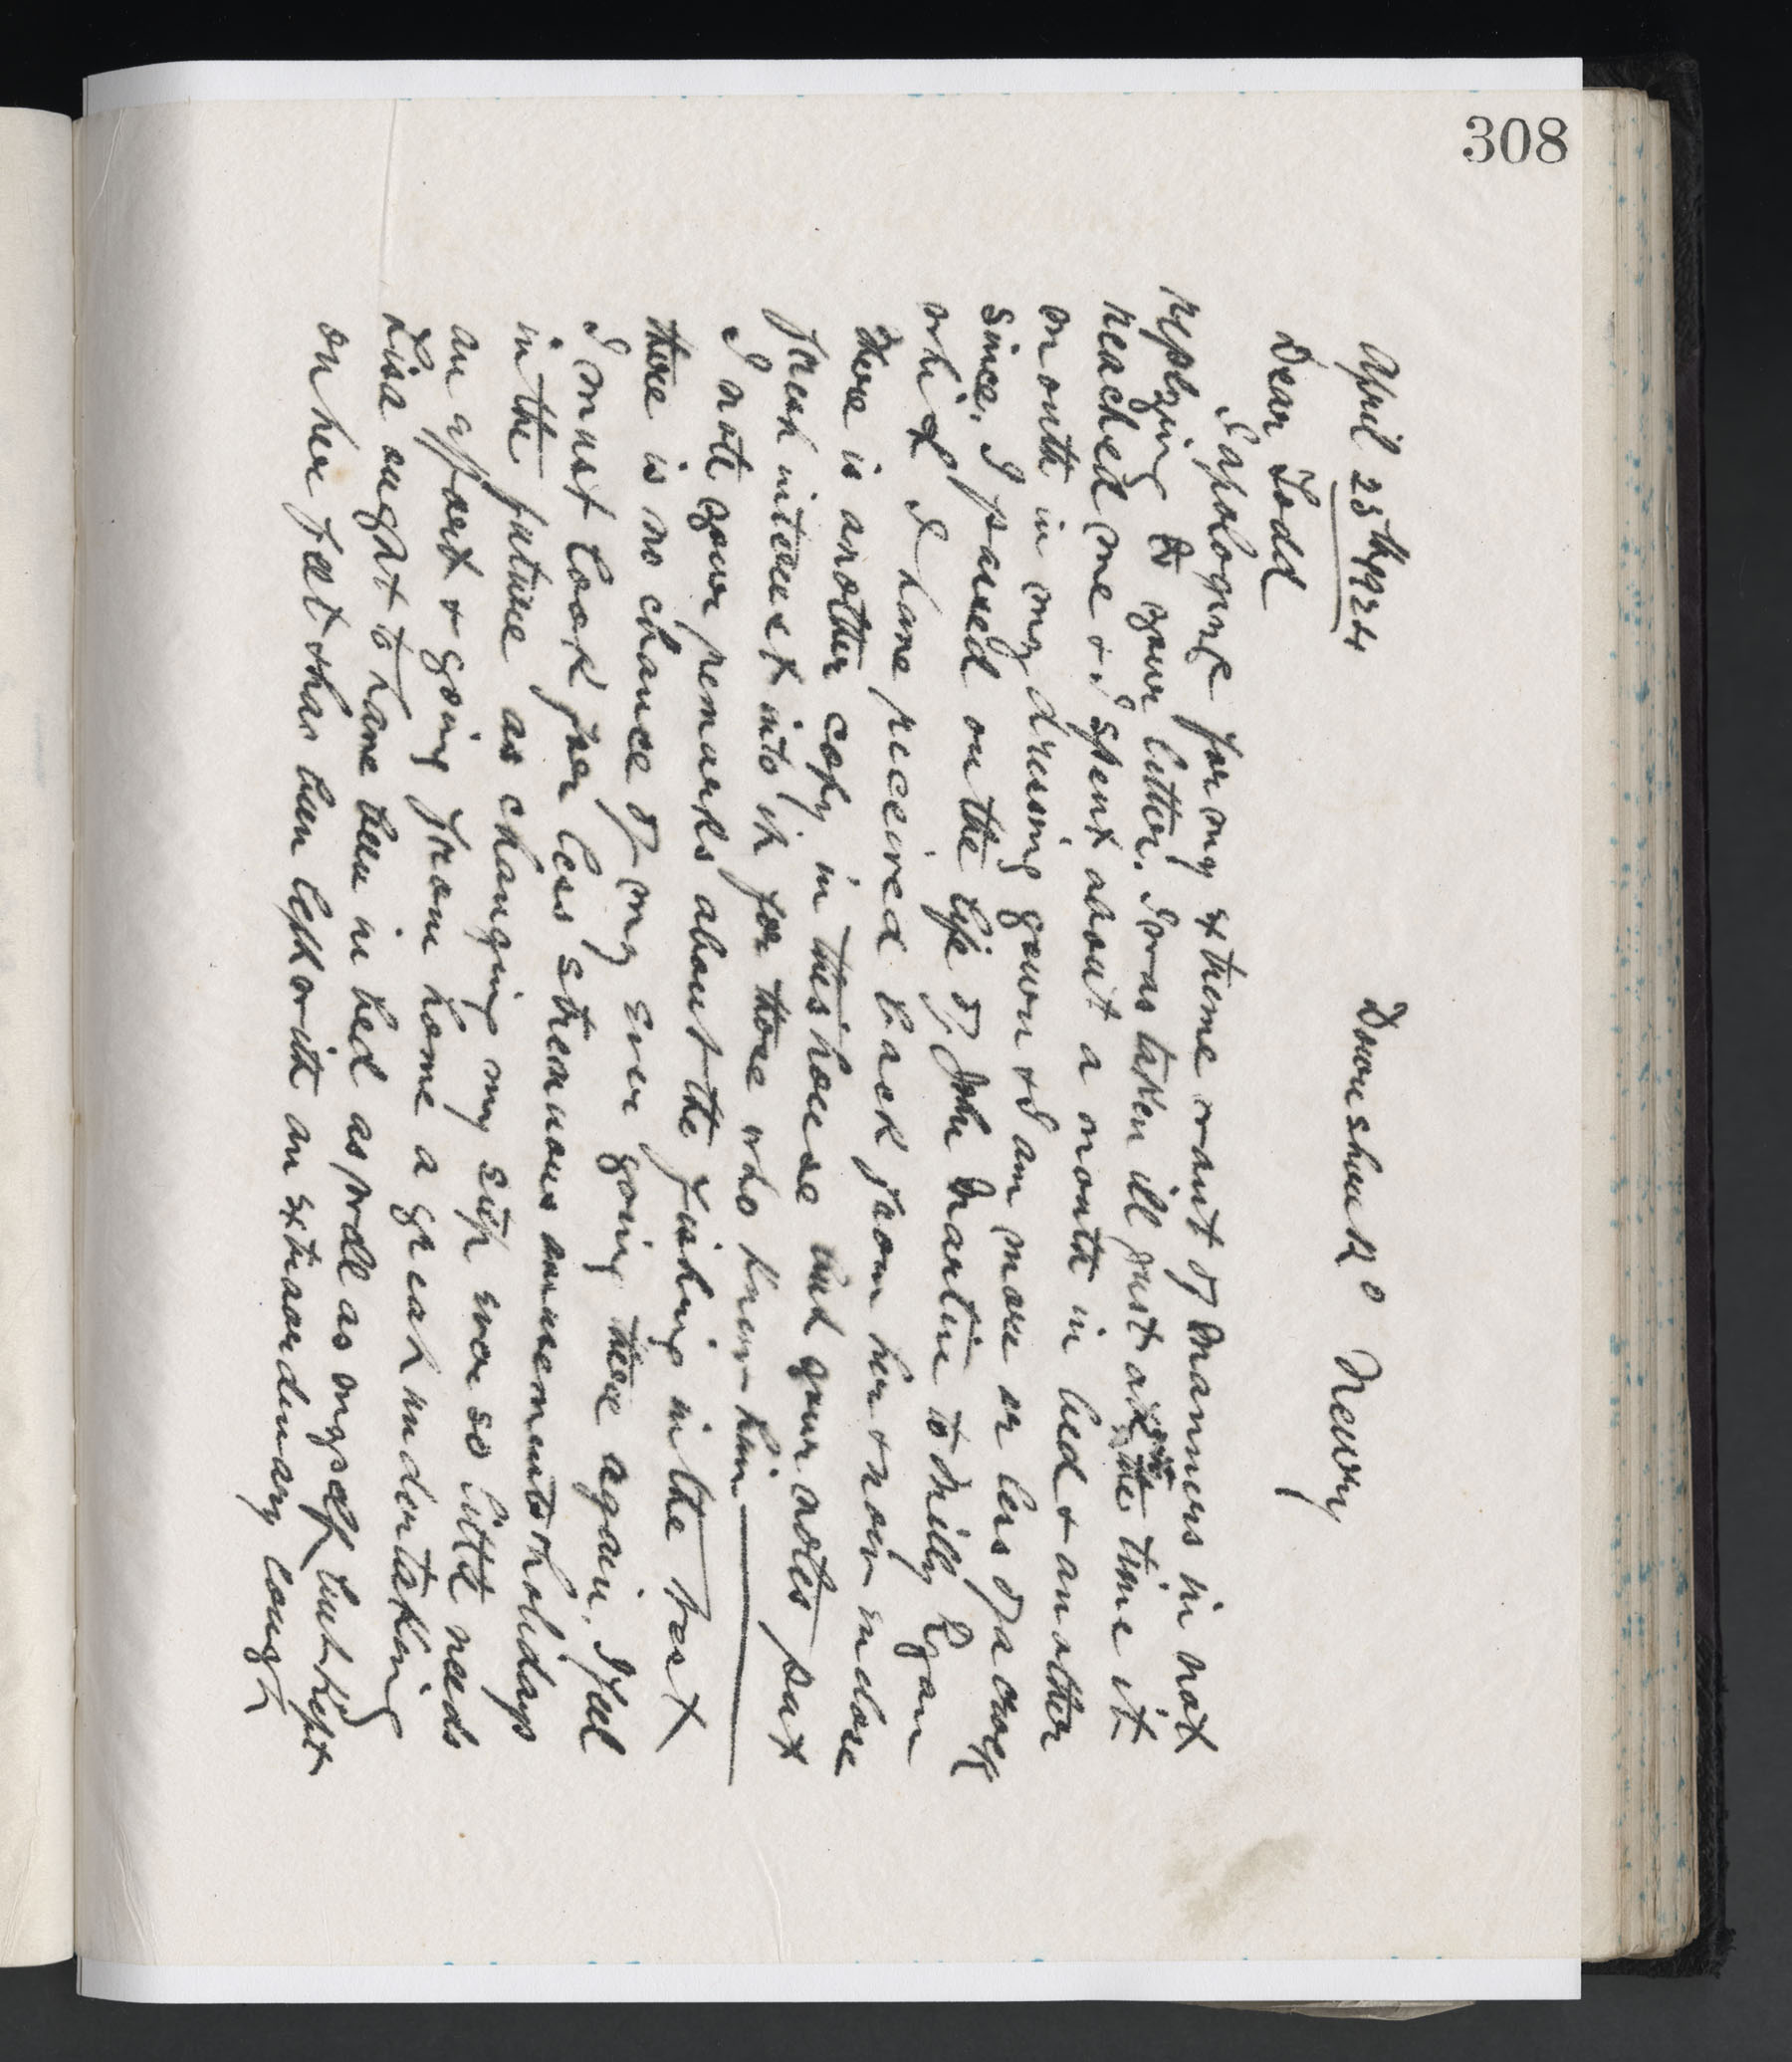 308
Downshill Newry
April 25th 1924
Dear Todd
I apologize for my extreme want of manners in not
replying to your letter. I was taken ill just at the time it
reached me & I spent about a month in bed & another
month in my dressing gown & I am more or less of a crock
since. I passed on the life of John Martin to Milly Ryan
which I have received back from her & now indose
there is another copy in this house but your notes put
fresh interest into it for those who knew him
I note your remarks about the fishing in the west
there is no chance of my ever going there again. I feel
I must look for less strenuous amusements & holidays
in the future as changing my step ever so little needs
an effort & going from home a great undertaking
Lisa ought to have been in bed as well as myself but kept
on her feet & has been left with an extraordinary cough